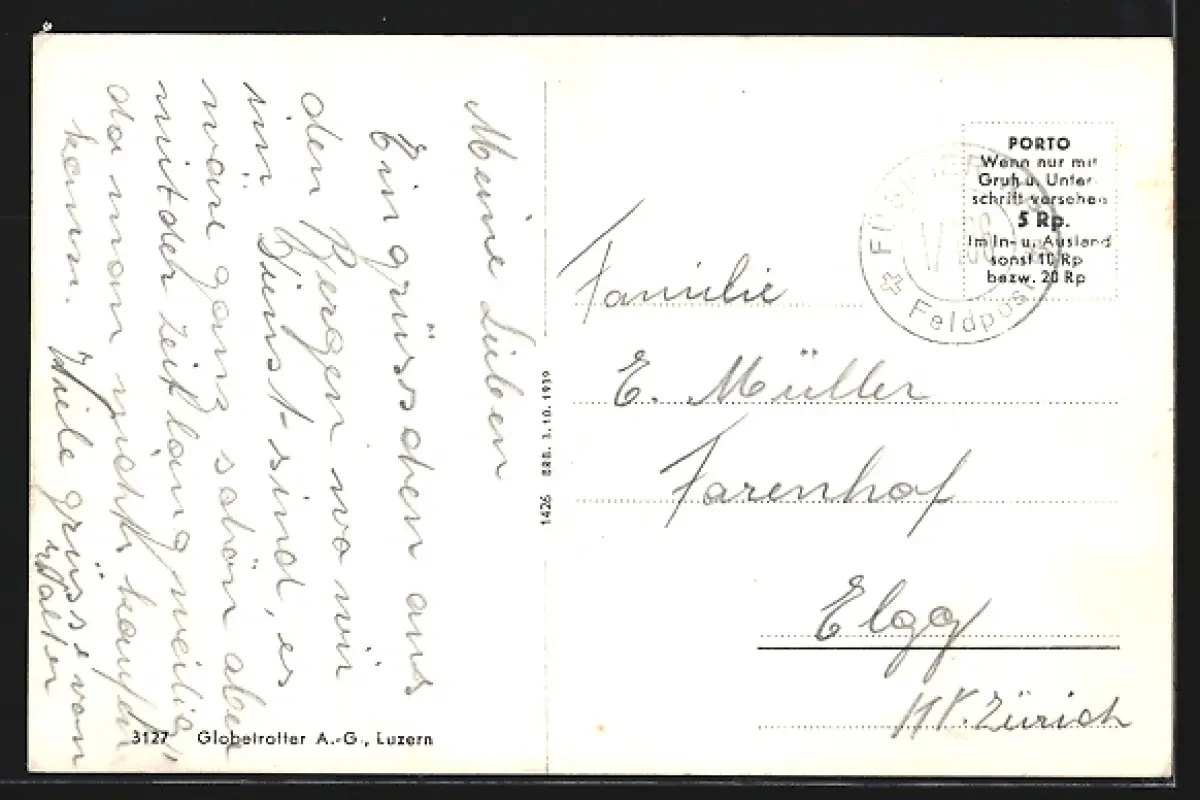 Meine Lieben
Ein grüsschen aus
den Bergen wo wir
im Dienst sind, es
wäre ganz schön aber
mit der Zeit langweilig,
da man nichts kaufen
kann.
Viele grüsse von
Walter
3127 Globetrotter A.-G., Luzern
1426 BRB. 3.10.1939
PORTO
Wenn nur mit
Gruß u. Unter-
schrift versehen
5 Rp.
Im In- u. Ausland
sonst 10 Rp
bezw. 20 Rp
Feldpost
Familie
E. Müller
Farenhof
Elgg
Kt. Zürich